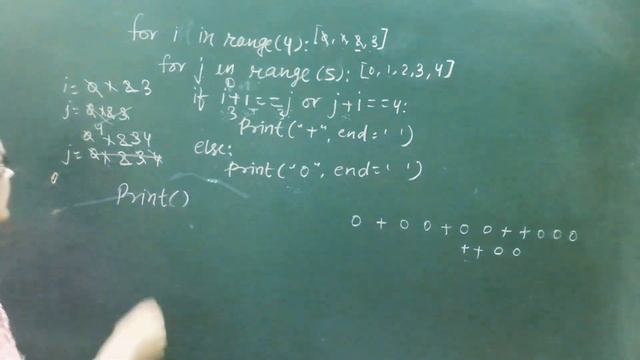 for i in range(4): [0, 1, 2, 3]
for j in range(5): [0, 1, 2, 3, 4]
i = 0 1 2 3
if i+1==j or j+i==4:
j = 0 1 2 3
Print("+", end=' ')
0 1 2 3 4
else:
j = 0 1 2 3 4
Print("0", end=' ')
0
Print()
0 + 0 0 + 0 0 + + 0 0 0
+ + 0 0